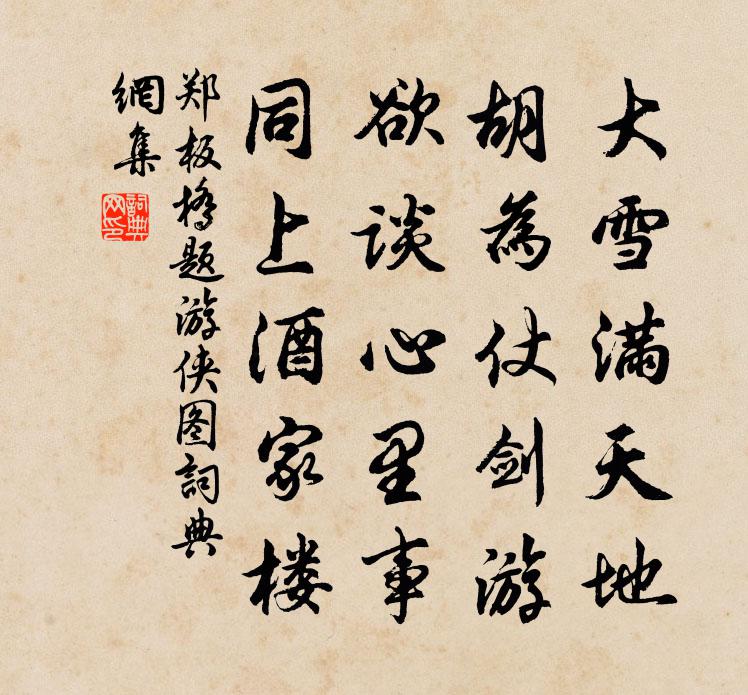 大雪满天地
胡為仗剑游
欲谈心里事
同上酒家楼
郑板橋题游侠图詞典
網集
詞典
网印